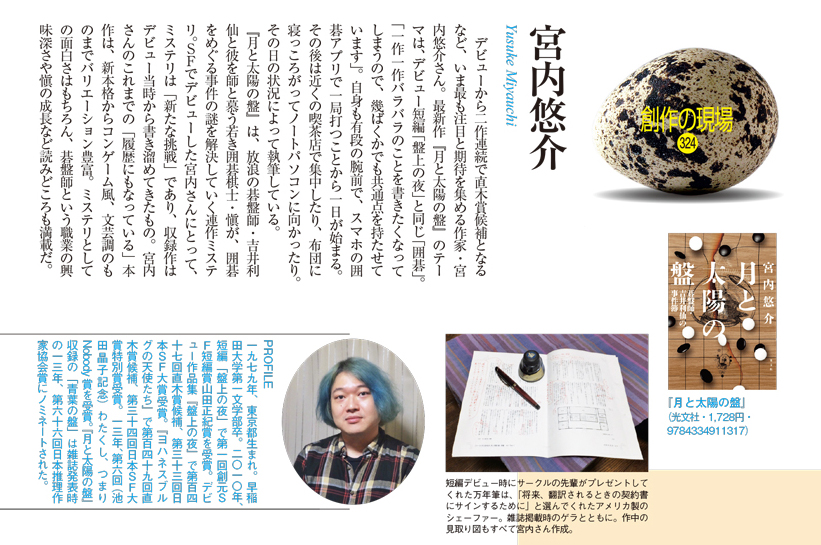 創作の現場
324
宮内悠介
Yusuke Miyauchi
デビューから二作連続で直木賞候補となる
など、いま最も注目と期待を集める作家・宮
内悠介さん。最新作『月と太陽の盤』のテー
マは、デビュー短編「盤上の夜」と同じ「囲碁」。
「一作一作バラバラのことを書きたくなって
しまうので、幾ばくかでも共通点を持たせて
います」。自身も有段の腕前で、スマホの囲
碁アプリで一局打つことから一日が始まる。
その後は近くの喫茶店で集中したり、布団に
寝っころがってノートパソコンに向かったり。
その日の状況によって執筆している。
『月と太陽の盤』は、放浪の碁盤師・吉井利
仙と彼を師と慕う若き囲碁棋士・愼が、囲碁
をめぐる事件の謎を解決していく連作ミステ
リ。SFでデビューした宮内さんにとって、
ミステリは「新たな挑戦」であり、収録作は
デビュー当時から書き溜めてきたもの。宮内
さんのこれまでの「履歴にもなっている」本
作は、新本格からコンゲーム風、文芸調のも
のまでバリエーション豊富。ミステリとして
の面白さはもちろん、碁盤師という職業の興
味深さや愼の成長など読みどころも満載だ。
宮内悠介
月と
太陽の
盤
碁盤師・
吉井利仙の
事件簿
『月と太陽の盤』
（光文社・1,728円・
9784334911317）
短編デビュー時にサークルの先輩がプレゼントして
くれた万年筆は、「将来、翻訳されるときの契約書
にサインするために」と選んでくれたアメリカ製の
シェーファー。雑誌掲載時のゲラとともに。作中の
見取り図もすべて宮内さん作成。
PROFILE
一九七九年、東京都生まれ。早稲
田大学第一文学部卒。二〇一〇年、
短編「盤上の夜」で第一回創元S
F短編賞山田正紀賞を受賞。デビ
ュー作品集『盤上の夜』で第百四
十七回直木賞候補、第三十三回日
本SF大賞受賞。『ヨハネスブル
グの天使たち』で第百四十九回直
木賞候補、第三十四回日本SF大
賞特別賞受賞。一三年、第六回（池
田晶子記念）わたくし、つまり
Nobody賞を受賞。『月と太陽の盤』
収録の「青葉の盤」は雑誌発表時
の一三年、第六十六回日本推理作
家協会賞にノミネートされた。